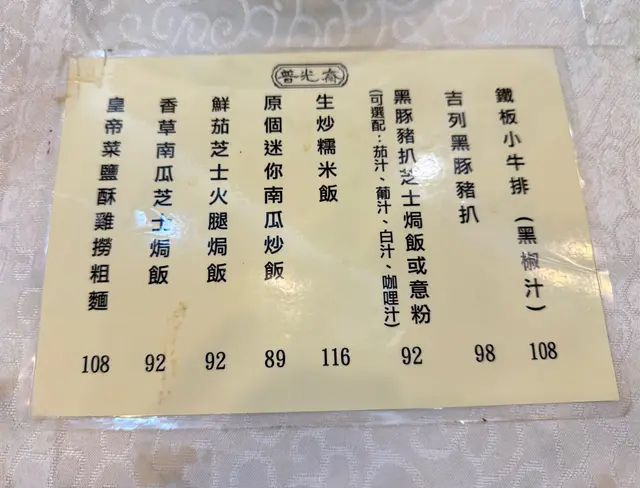 普光齋
鐵板小牛排（黑椒汁）
108
吉列黑豚豬扒
98
黑豚豬扒芝士焗飯或意粉
(可選配：茄汁、葡汁、白汁、咖哩汁)
92
生炒糯米飯
116
原個迷你南瓜炒飯
89
鮮茄芝士火腿焗飯
92
香草南瓜芝士焗飯
92
皇帝菜鹽酥雞撈粗麵
108